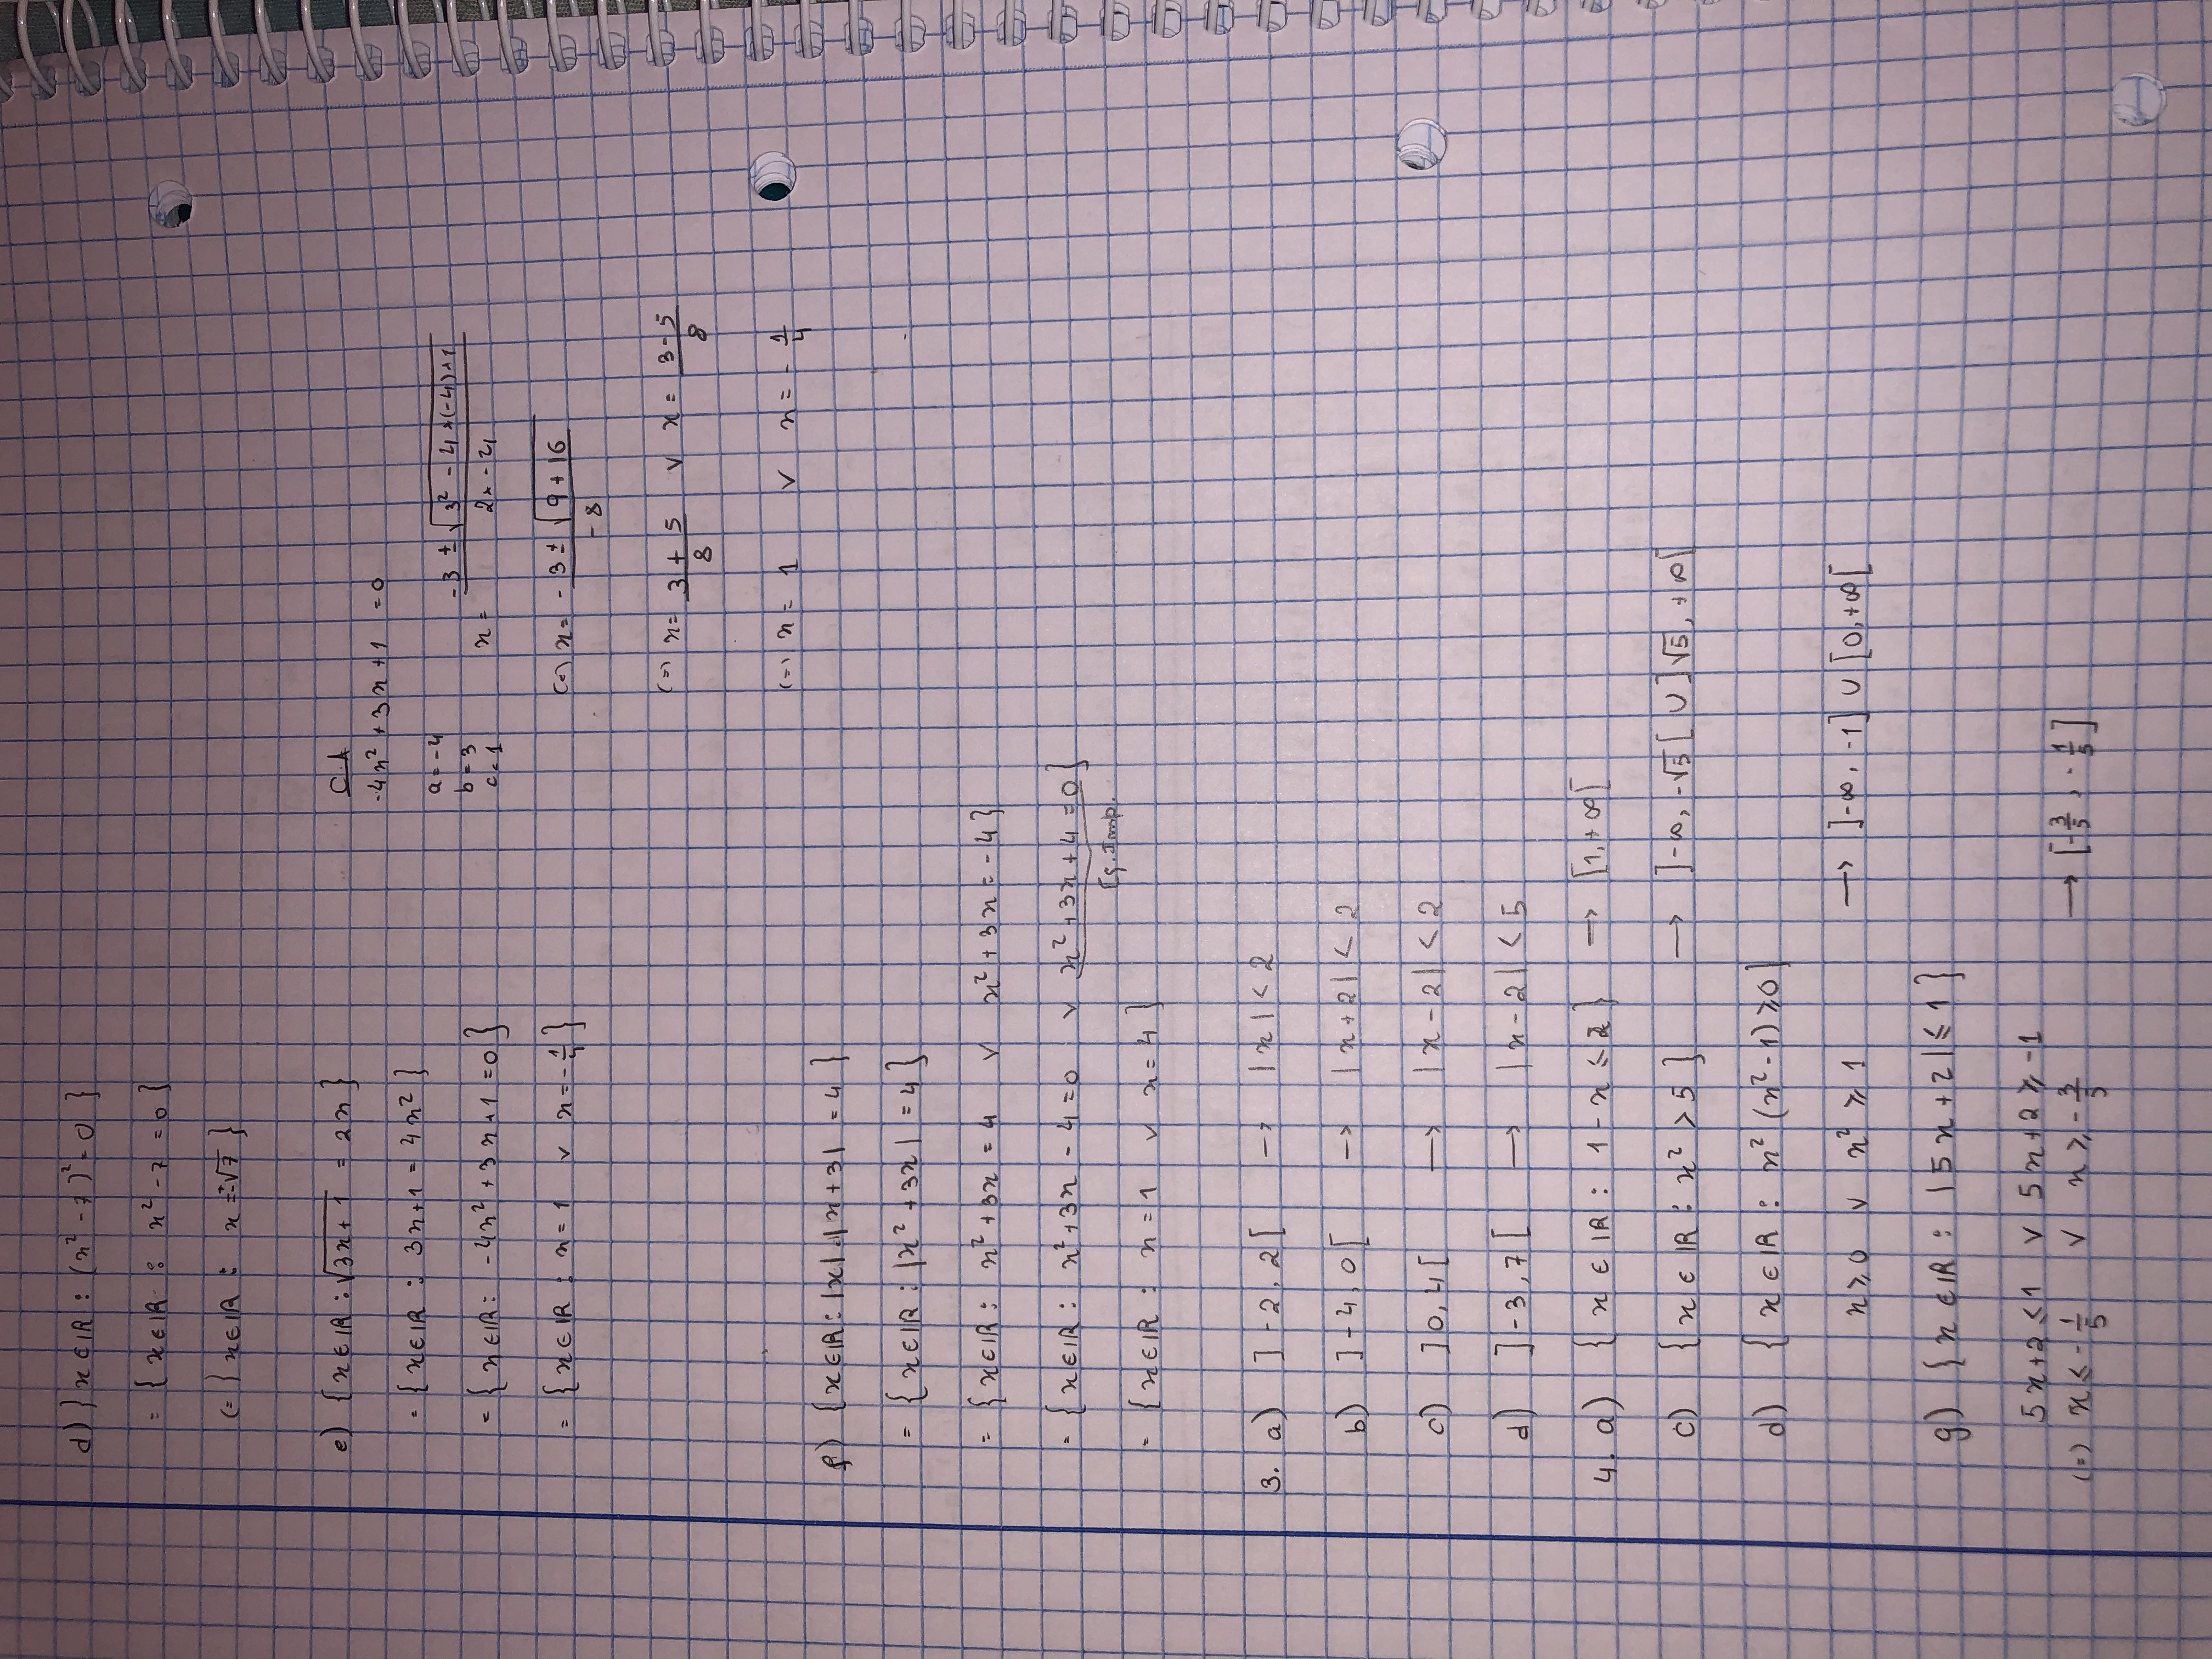 d) } x ∈ IR : (x² - 7)² = 0 }
= { x ∈ IR : x² - 7 = 0 }
(= } x ∈ IR : x = ±√7 }
e) { x ∈ IR : √(3x + 1) = 2x }
= { x ∈ IR : 3x + 1 = 4x² }
= { x ∈ IR : -4x² + 3x + 1 = 0 }
= { x ∈ IR : x = 1 ∨ x = -1/4 }
C.A
-4x² + 3x + 1 = 0
a = -4
b = 3
c = 1
x = (-3 ± √(3² - 4 × (-4) × 1)) / (2 × -4)
(=) x = (-3 ± √(9 + 16)) / -8
(=) x = (3 + 5) / 8 ∨ x = (3 - 5) / 8
(=) x = 1 ∨ x = -1/4
f) { x ∈ IR : |x| . |x + 3| = 4 }
= { x ∈ IR : |x² + 3x| = 4 }
= { x ∈ IR : x² + 3x = 4 ∨ x² + 3x = -4 }
= { x ∈ IR : x² + 3x - 4 = 0 ∨ x² + 3x + 4 = 0 }
Eq. Imp.
= { x ∈ IR : x = 1 ∨ x = 4 }
3. a) ] -2, 2 [ → |x| < 2
b) ] -4, 0 [ → |x + 2| < 2
c) ] 0, 4 [ → |x - 2| < 2
d) ] -3, 7 [ → |x - 2| < 5
4. a) { x ∈ IR : 1 - x ≤ 2 } → [1, +∞[
c) { x ∈ IR : x² > 5 } → ]-∞, -√5 [ ∪ ] √5, +∞[
d) { x ∈ IR : x² (x² - 1) ≥ 0 }
x ≥ 0 ∨ x² ≥ 1 → ]-∞, -1] ∪ [0, +∞[
g) { x ∈ IR : |5x + 2| ≤ 1 }
5x + 2 ≤ 1 ∨ 5x + 2 ≥ -1
(=) x ≤ -1/5 ∨ x ≥ -3/5 → [-3/5, -1/5]